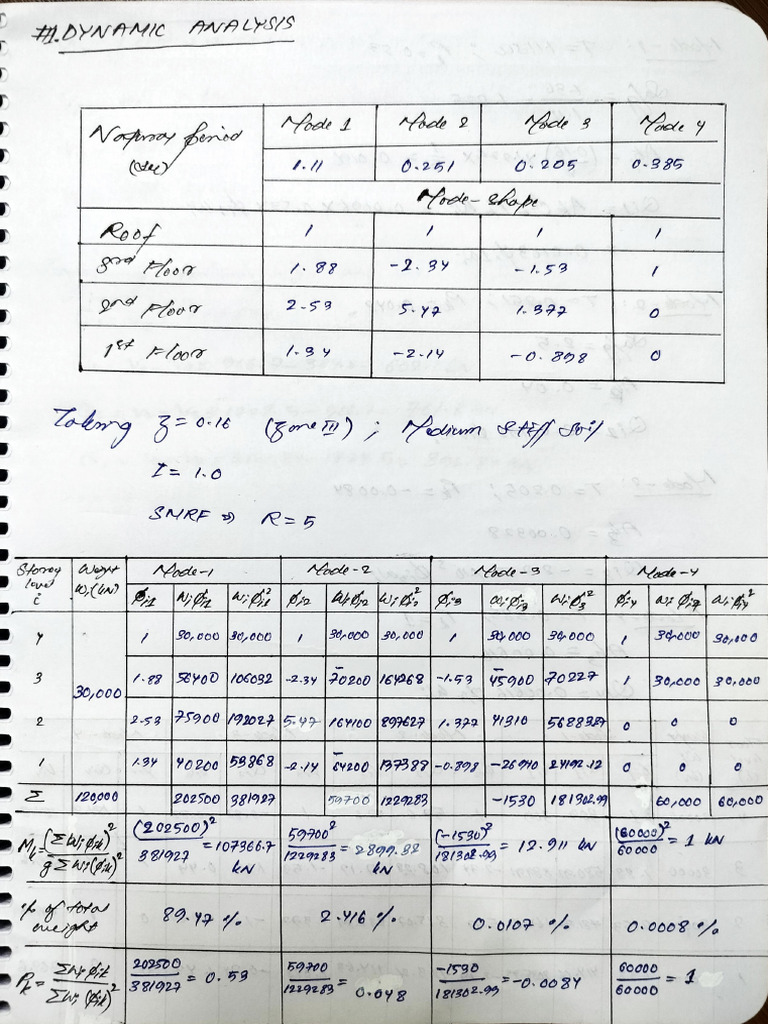 #1. DYNAMIC ANALYSIS
Natural period (sec) Mode 1 Mode 2 Mode 3 Mode 4
1.11 0.251 0.205 0.385
Mode-shape
Roof 1 1 1 1
3rd Floor 1.88 -2.34 -1.53 1
2nd Floor 2.53 5.47 1.377 0
1st Floor 1.34 -2.14 -0.898 0
Taking Z = 0.16 (Zone III) ; Medium Stiff Soil
I = 1.0
SMRF ⇒ R = 5
Storey level i Weight Wi (kN) Mode-1 Mode-2 Mode-3 Mode-4
ϕi1 Wiϕi1 Wiϕi1² ϕi2 Wiϕi2 Wiϕi2² ϕi3 Wiϕi3 Wiϕi3² ϕi4 Wiϕi4 Wiϕi4²
4 1 30,000 30,000 1 30,000 30,000 1 30,000 30,000 1 30,000 30,000
3 1.88 56400 106032 -2.34 -70200 164268 -1.53 -45900 70227 1 30,000 30,000
30,000
2 2.53 75900 192027 5.47 164100 897627 1.377 41310 56883.87 0 0 0
1 1.34 40200 53868 -2.14 -64200 137388 -0.898 -26940 24192.12 0 0 0
Σ 120,000 202500 381927 59700 1229283 -1530 181302.99 60,000 60,000
Mk = (ΣWiϕik)² / gΣWi(ϕik)² (202500)² / 381927 = 107366.7 kN 59700² / 1229283 = 2899.32 kN (-1530)² / 181302.99 = 12.911 kN (60000)² / 60000 = 1 kN
% of total weight 89.47 % 2.416 % 0.0107 % 0.0008 %
Pk = ΣWiϕik / ΣWi(ϕik)² 202500 / 381927 = 0.53 59700 / 1229283 = 0.048 -1530 / 181302.99 = -0.0084 60000 / 60000 = 1